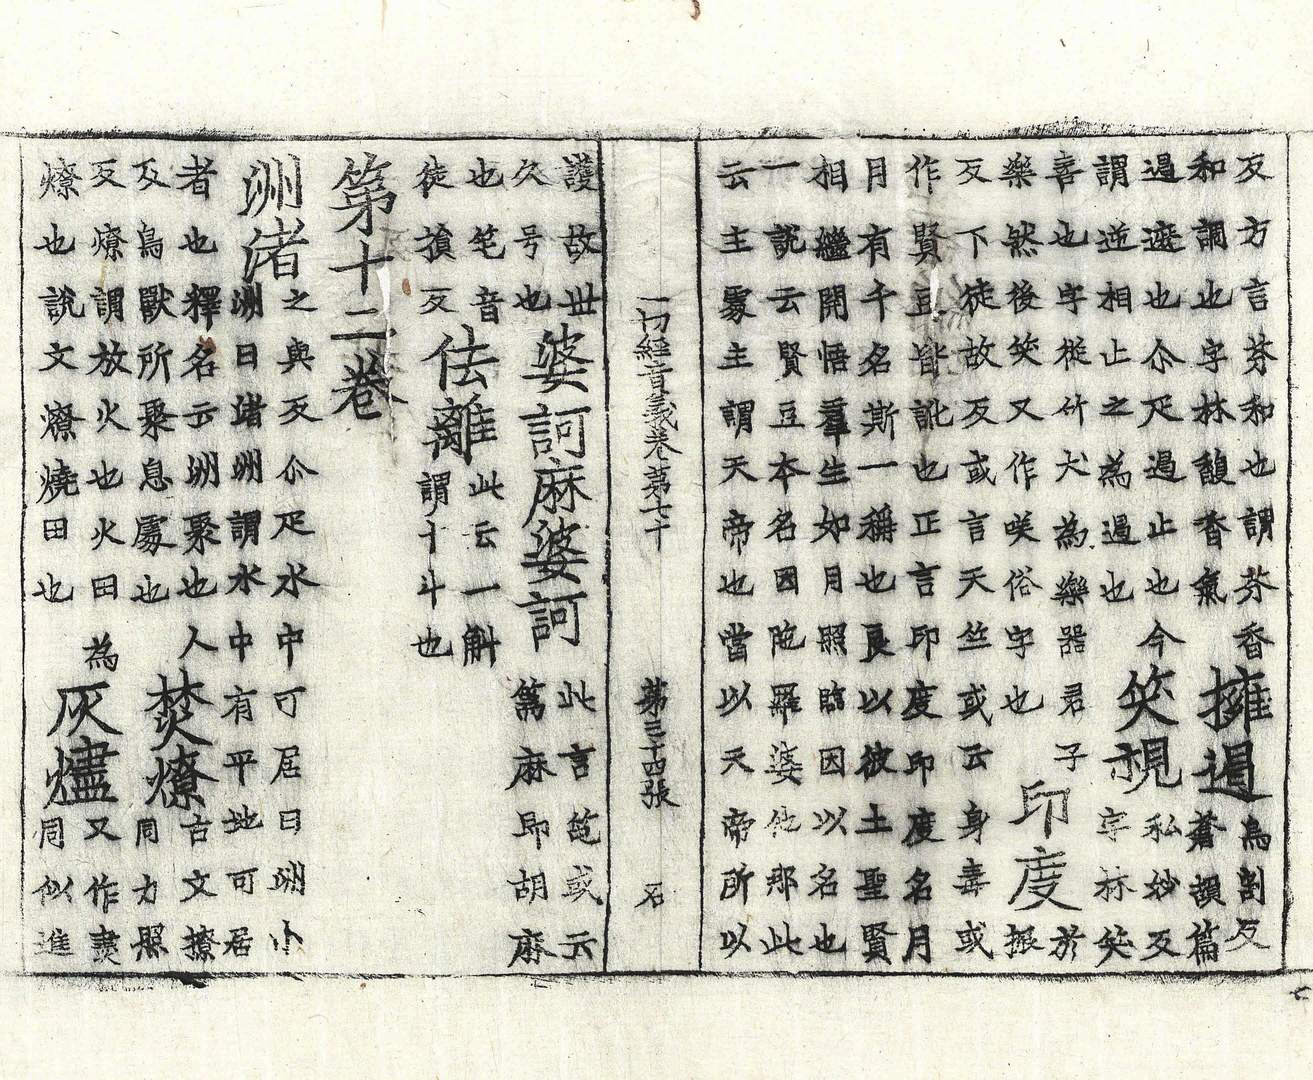 反方言芬和也謂芬香
和調也字林馥香氣
擁遏
烏割反
蒼頡篇
遏遮也尒疋遏止也今
謂逆相止之為遏也
笑視
私妙反
字林笑
喜也字從竹犬為樂器君子
樂然後笑又作咲俗字也
印度
於
振
反下徒故反或言天竺或云身毒或
作賢豆皆訛也正言印度印度名月
月有千名斯一稱也良以彼土聖賢
相繼開悟羣生如月照臨因以名也
一說云賢豆本名因陀羅婆他那此
云主處主謂天帝也當以天帝所以
一切經音義卷第七十 第三十四張 石
護故世
久号也
婆訶麻婆訶
此言笔或云
篅麻即胡麻
也笔音
徒損反
佉離
此云一斛
謂十斗也
第十二卷
洲渚
之與反尒疋水中可居曰洲小
洲曰渚洲謂水中有平地可居
者也釋名云洲聚也人
及鳥獸所聚息處也
焚燎
古文撩
同力照
反燎謂放火也火田為
燎也說文燎燒田也
灰燼
又作㶳
同似進